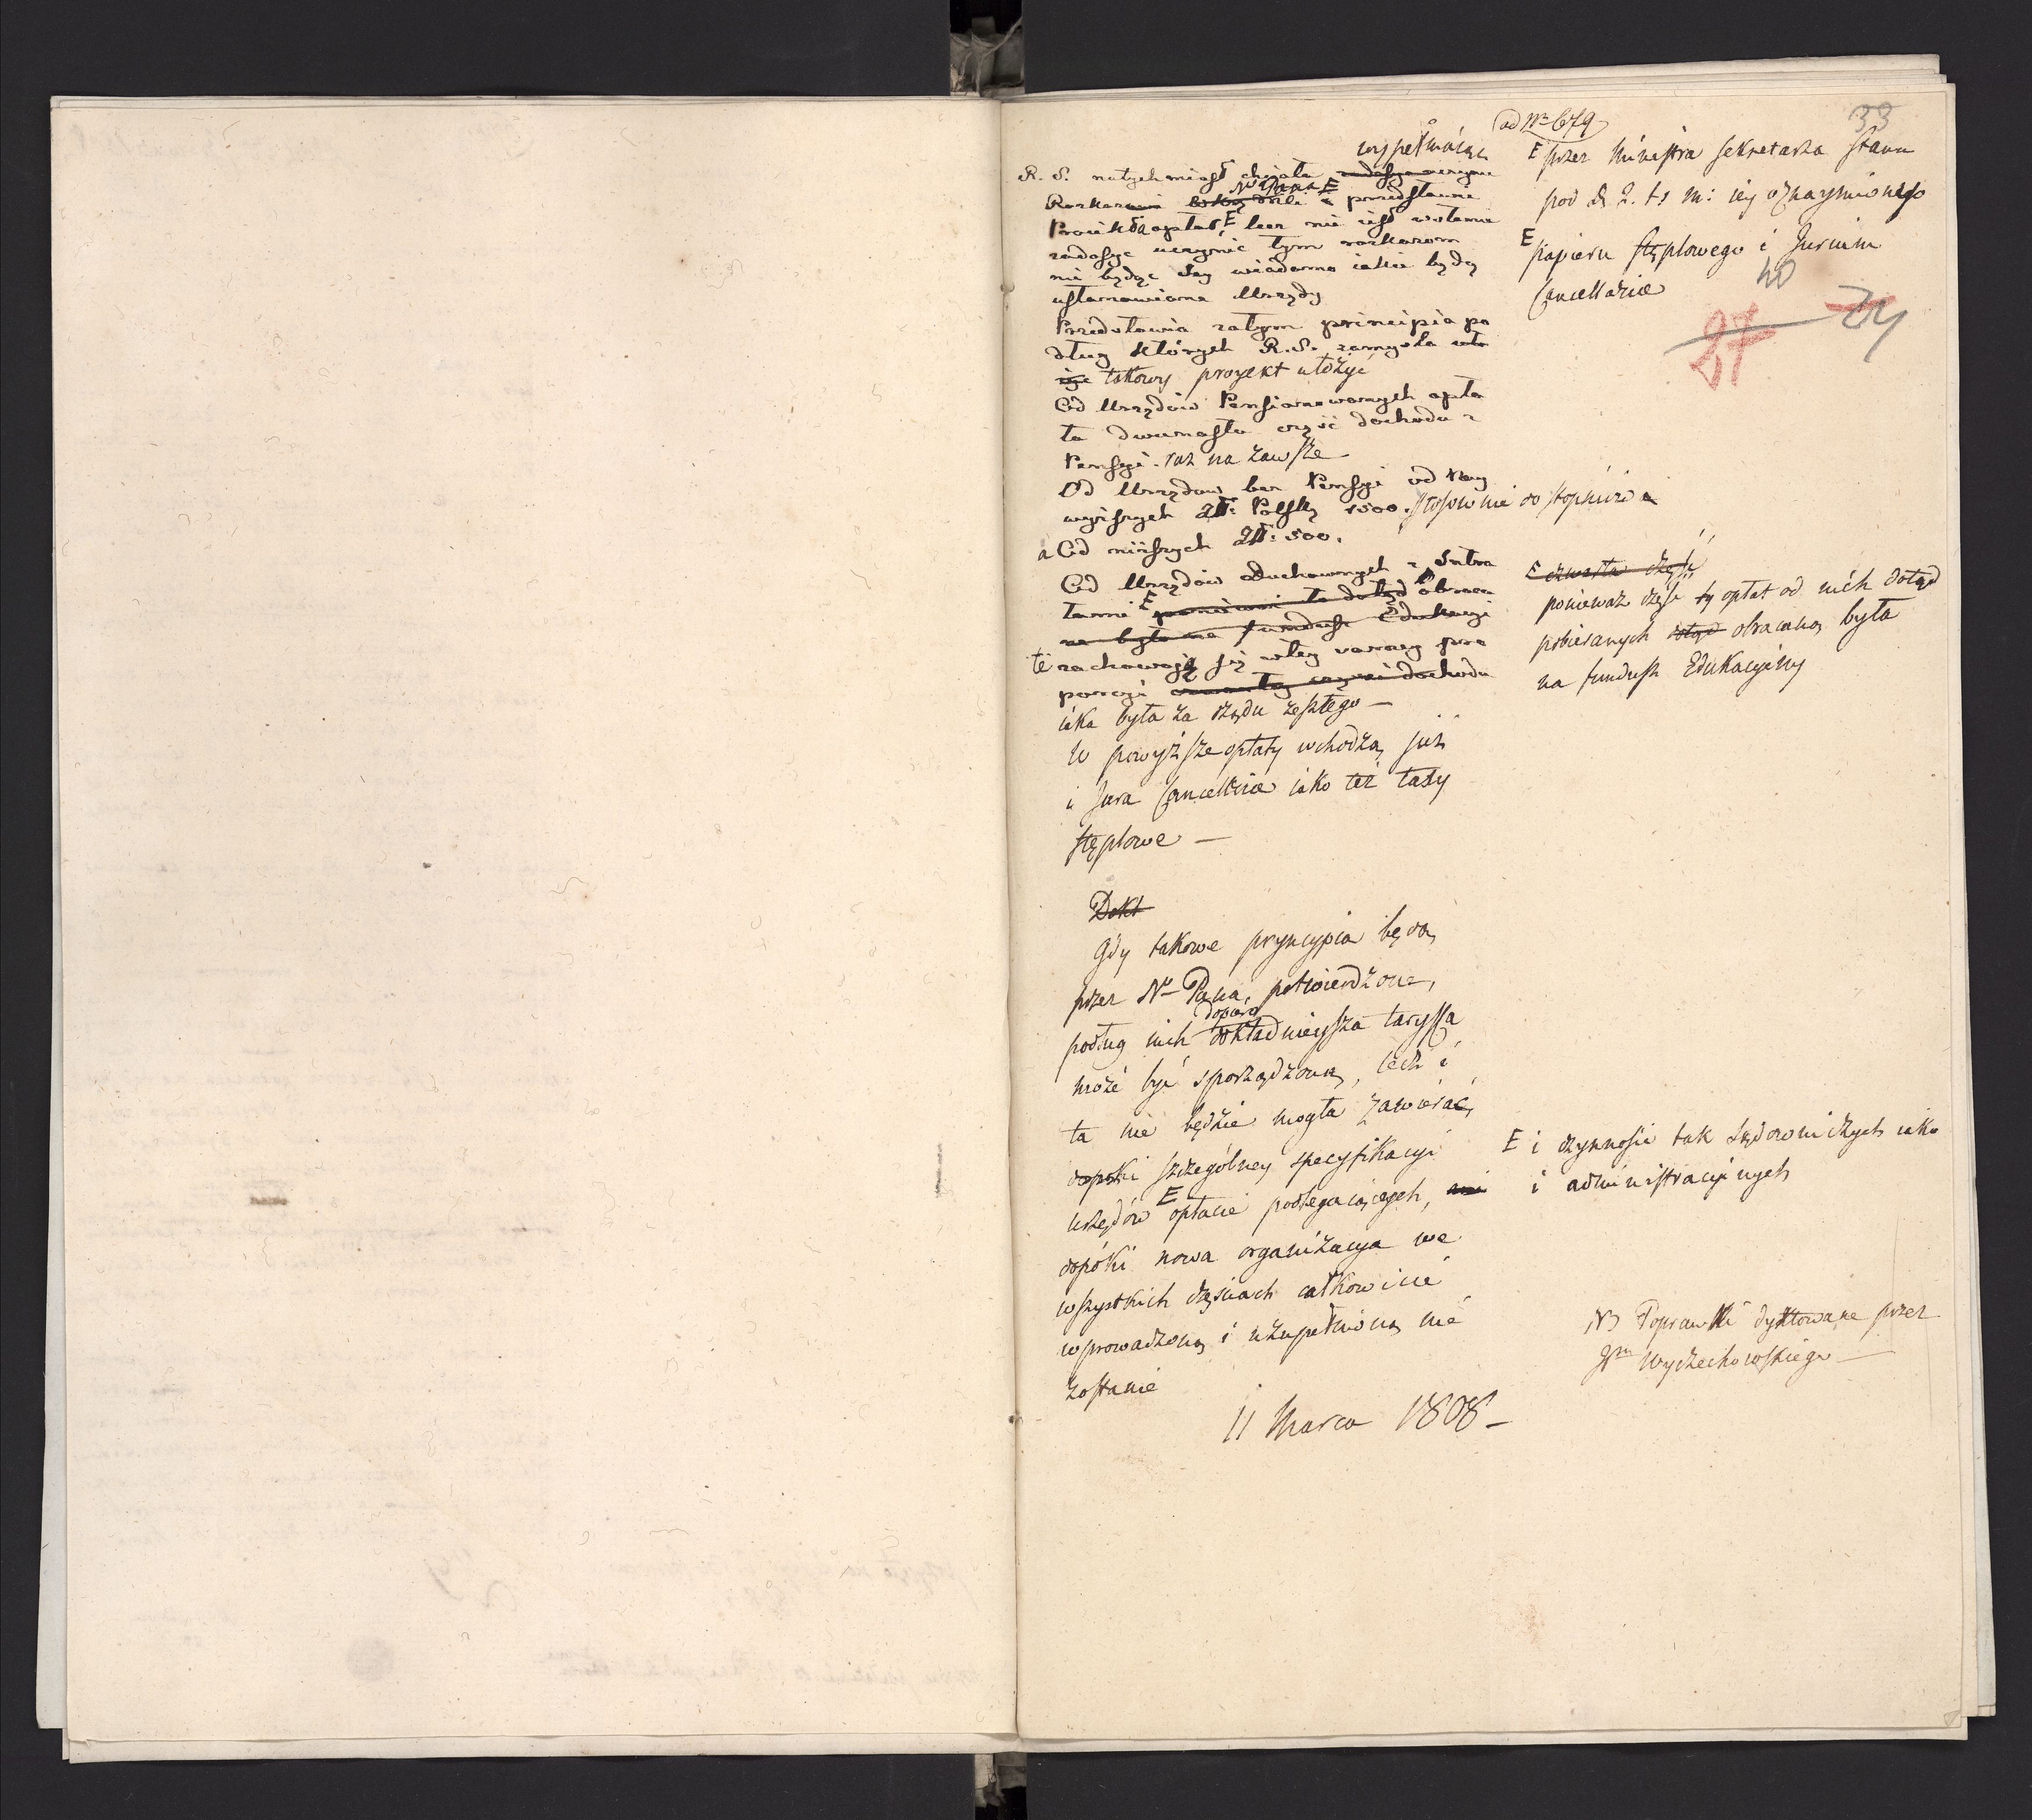 ad Nr 679
33
wypełniaiąc
R. S. natychmiast chciała zadosyc uczynic
Rozkazowi N° Pana E przedstawie
Proiekta opłat E lecz nie iest wstanie
zadosyc uczynic tym rozkazom
nie będąc Jey wiadomo iakie będą
ustanowione Urzędy
Przedstawia zatym principia po
dług których R. S. zamysla uło
życ takowy proiekt ułożyć
Od Urzędów Pensionowanych opła
ta dwunasta część dochodu z
Pensyi. raz na zawsze
Od Urzędow bez Pensyi od Nay
wyższych Złł: Polsk 1500. stosownie do stopniów a
a Od niższych Złł: 500.
Od Urzędów Duchownych z Intra
tami E ponieważ ta dotąd obraca
na była na fundusz Edukacyi
te zachowają się w tey samey pro
porcyi czwartey części dochodu
iaka była za rządu zeszłego —
W powyższe opłaty wchodzą już
i Jura Cancellariae iako też taxy
stęplowe —
Dokł
Gdy takowe pryncypia będą
przez N° Pana, potwierdzone,
podług nich dopiero dokładnieysza taryffa
może być sporządzona, lecz i
ta nie będzie mogła zawierać,
dopóki szczególney specyfikacyi
urzędów E opłacie podlegaiących, ani
dopóki nowa organizacya we
wszystkich częściach całkowicie
wprowadzoną i uzupełnioną nie
zostanie
11 Marca 1808 —
E przez Ministra Sekretarza Stanu
pod d. 2. t. m: iey oznaymionego
E papieru stęplowego i Jurium
Cancellariae
40
27
24
E czwarta część
ponieważ część ty opłat od nich dotąd
pobieranych dotąd obracaną była
na fundusz Edukacyiny
E i czynności tak sądowniczych iako
i administracyinych
NB Poprawki dyktowane przez
Jpn Wyczechowskiego —